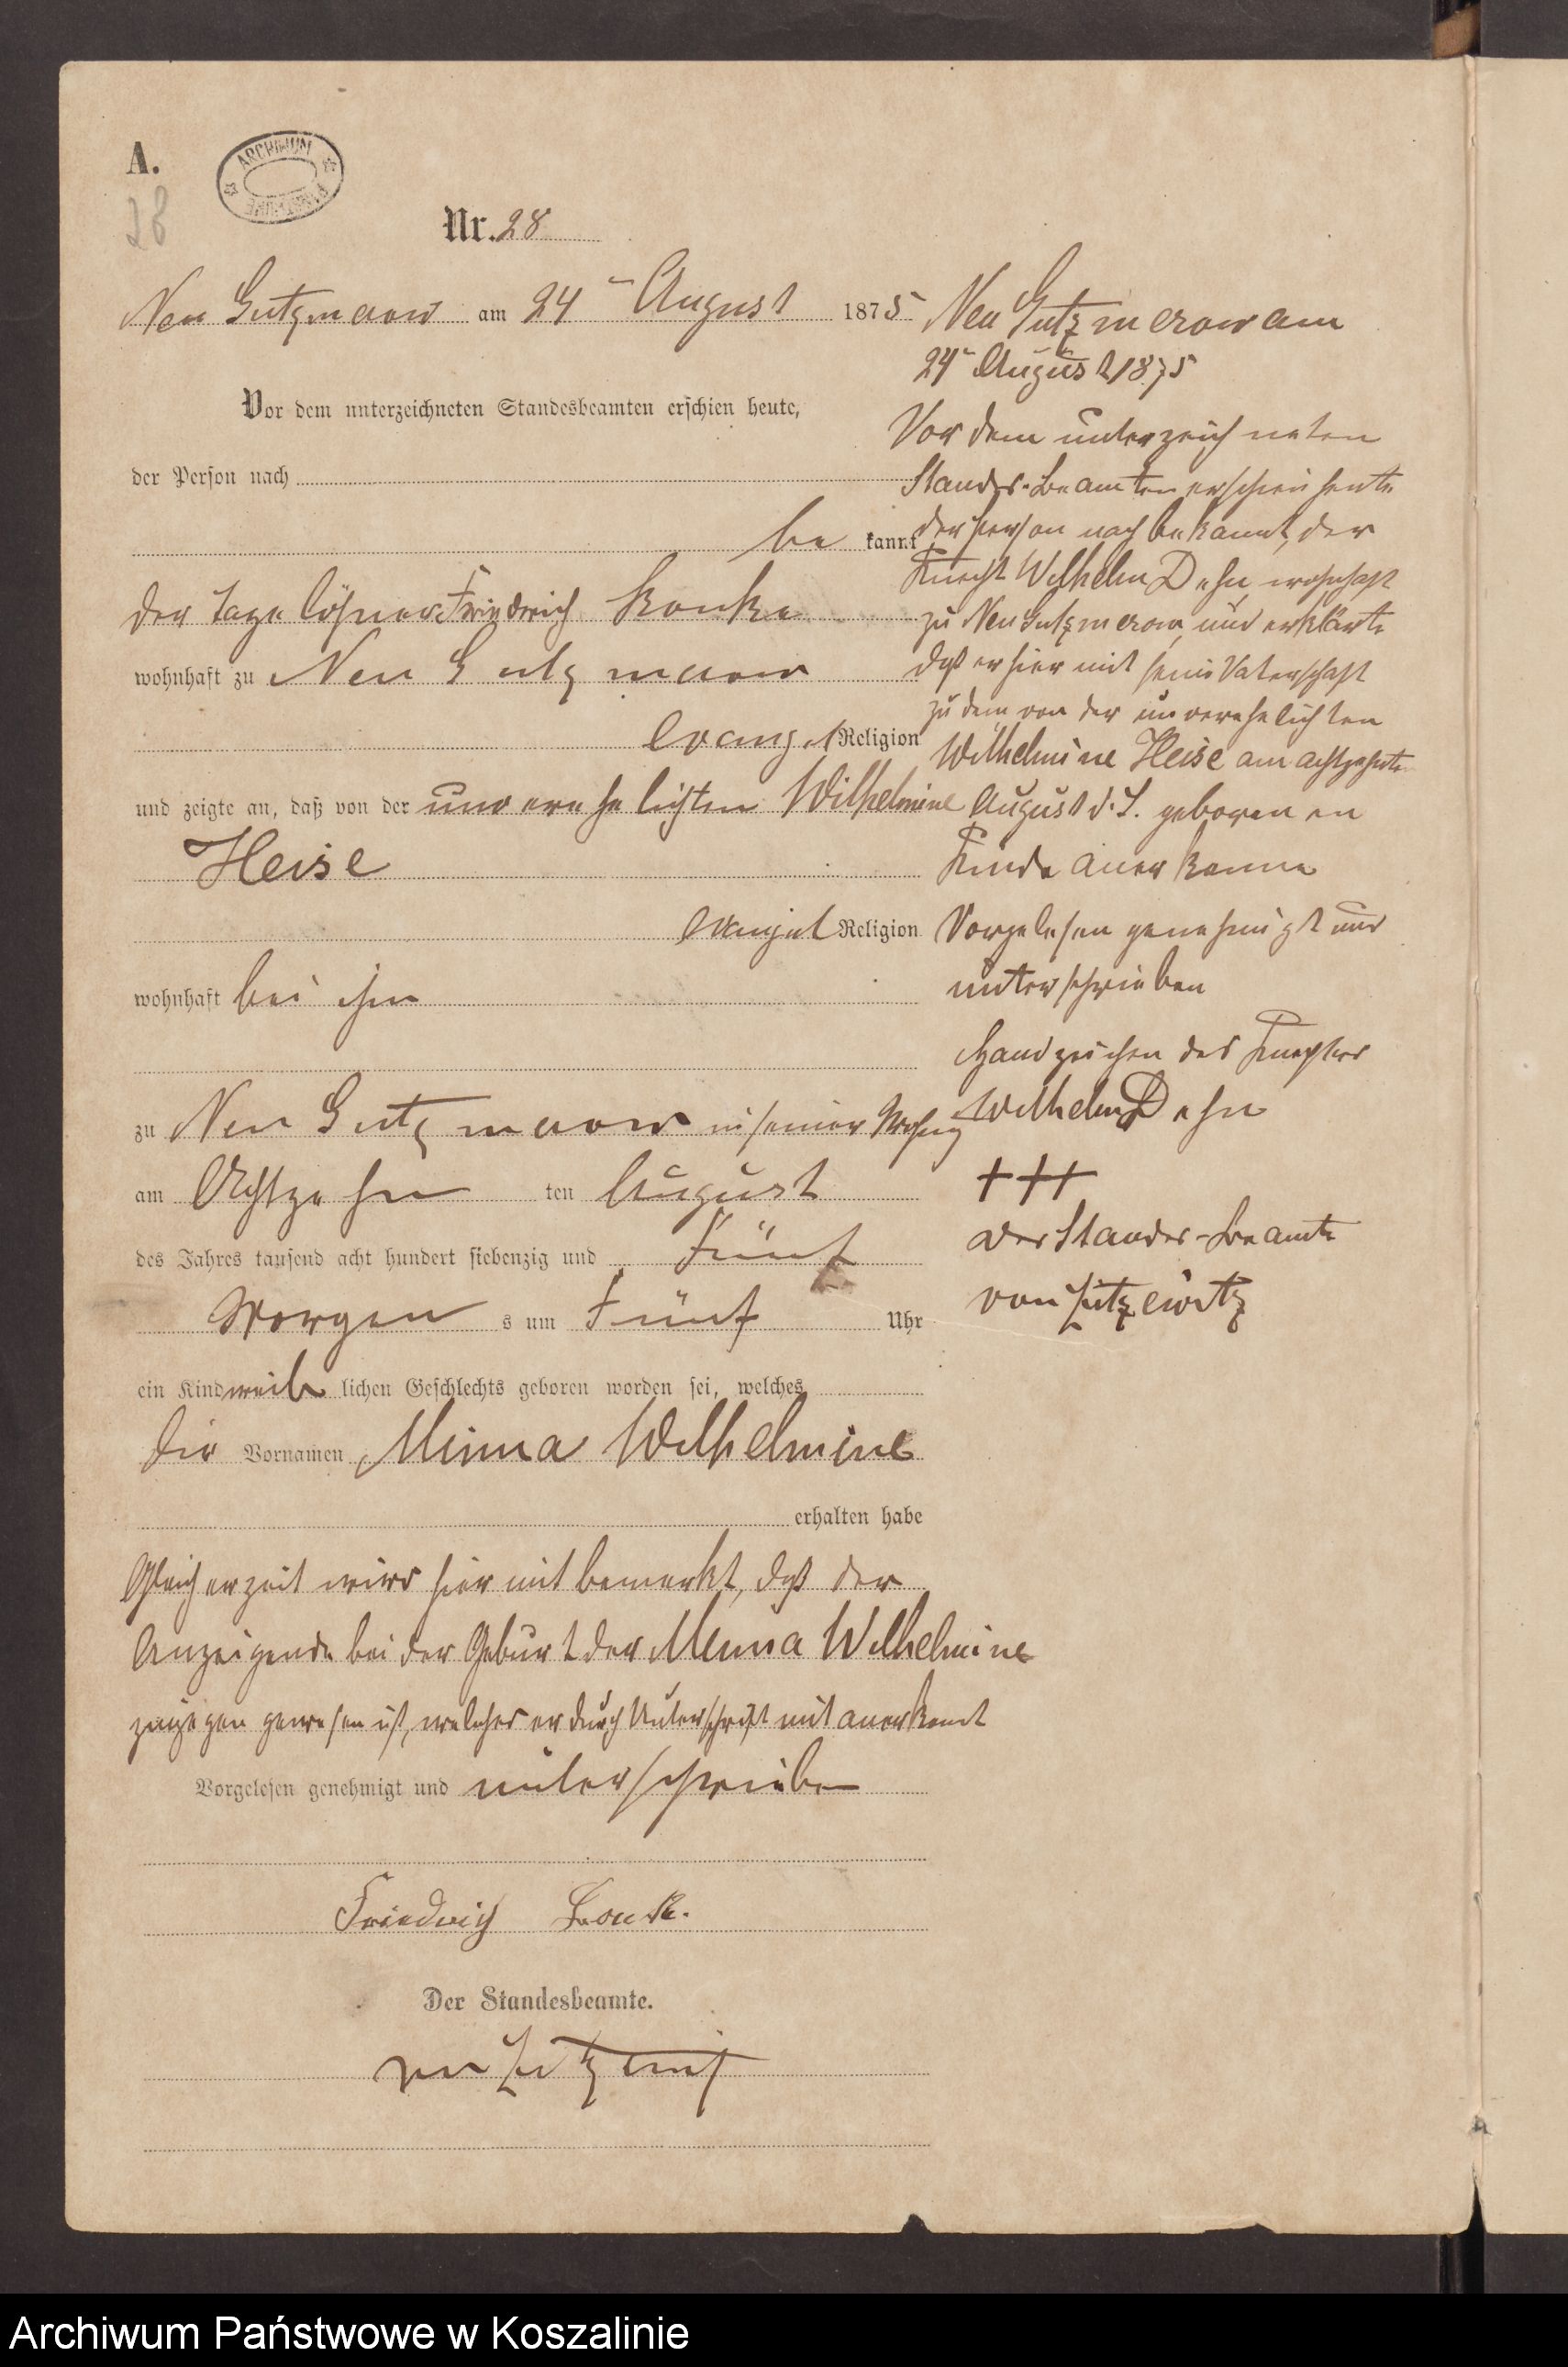 A.
ARCHIWUM
28
Nr. 28
Neu Gutzmerow am 24ⁿ August 1875
Vor dem unterzeichneten Standesbeamten erschien heute,
der Person nach
be kannt
der Tagelöhner Friedrich Konke
wohnhaft zu Neu Gutzmerow
evangel Religion
und zeigte an, daß von der unverehelichten Wilhelmine
Heise
evangel Religion
wohnhaft bei ihm
zu Neu Gutzmerow in seiner Wohng
am Achtzehn ten August
des Jahres tausend acht hundert siebenzig und Fünf
Morgen s um Fünf Uhr
ein Kind weib lichen Geschlechts geboren worden sei, welches
die Vornamen Minna Wilhelmine
erhalten habe
Gleicherzeit wird hiermit bemerkt, daß der
Anzeigende bei der Geburt der Minna Wilhelmine
zugegen gewesen ist, welches er durch Unterschrift mit anerkent
Vorgelesen genehmigt und unterschrieben
Friedrich
Der Standesbeamte.
von Zitzewitz
Neu Gutzmerow am
24ⁿ August 1875
Vor dem unterzeichneten
Standes-Beamten erschien heute
der Person nach bekannt, der
Knecht Wilhelm Dehn wohnhaft
zu Neu Gutzmerow und erklärte
daß er hiermit seine Vaterschaft
zu dem von der unverehelichten
Wilhelmine Heise am achtzehnten
August d. J. geborenen
Kinde anerkenne
Vorgelesen genehmigt und
unterschrieben
Handzeichen des Knechtes
Wilhelm Dehn
+++
Der Standes-Beamte
von Zitzewitz
Archiwum Państwowe w Koszalinie